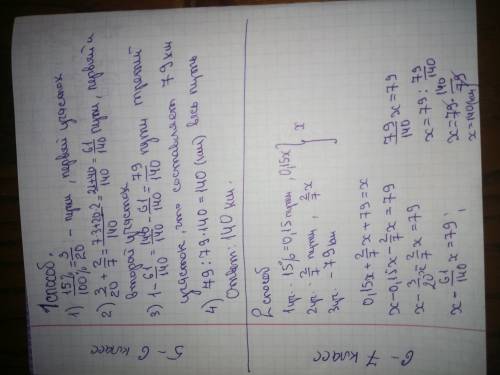 5-6 класс
1 способ.
1) 15%/100% = 3/20 - пути, первый участок
2) 3/20 + 2/7 = (7·3+20·2)/140 = (21+40)/140 = 61/140 пути, первый и
второй участок
3) 1 - 61/140 = 140/140 - 61/140 = 79/140 пути третий
участок, что составляет 79 км
4) 79:79·140=140 (км) весь путь
Ответ: 140 км.
6-7 класс
2 способ
1 уч. - 15% = 0,15 пути, 0,15x
2 уч. - 2/7 пути, 2/7x
3 уч. - 79 км
x
0,15x + 2/7x + 79 = x
x - 0,15x - 2/7x = 79
x - 3/20x - 2/7x = 79
x - 61/140x = 79;
79/140x = 79
x = 79 : 79/140
x = 79 · 140/79
x = 140 (км)